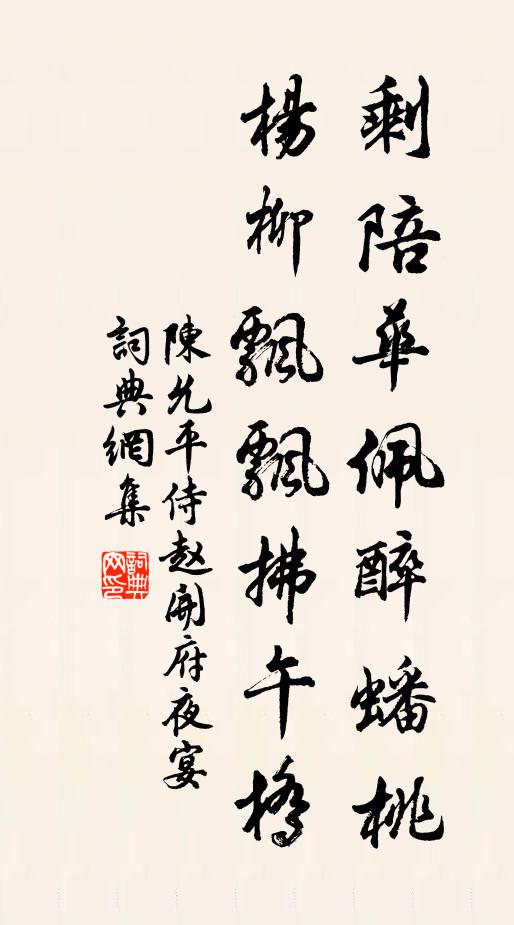 剩陪華佩醉蟠桃
楊柳飄飄拂午橋
陳允平侍赵開府夜宴
詞典網集
詞典網印